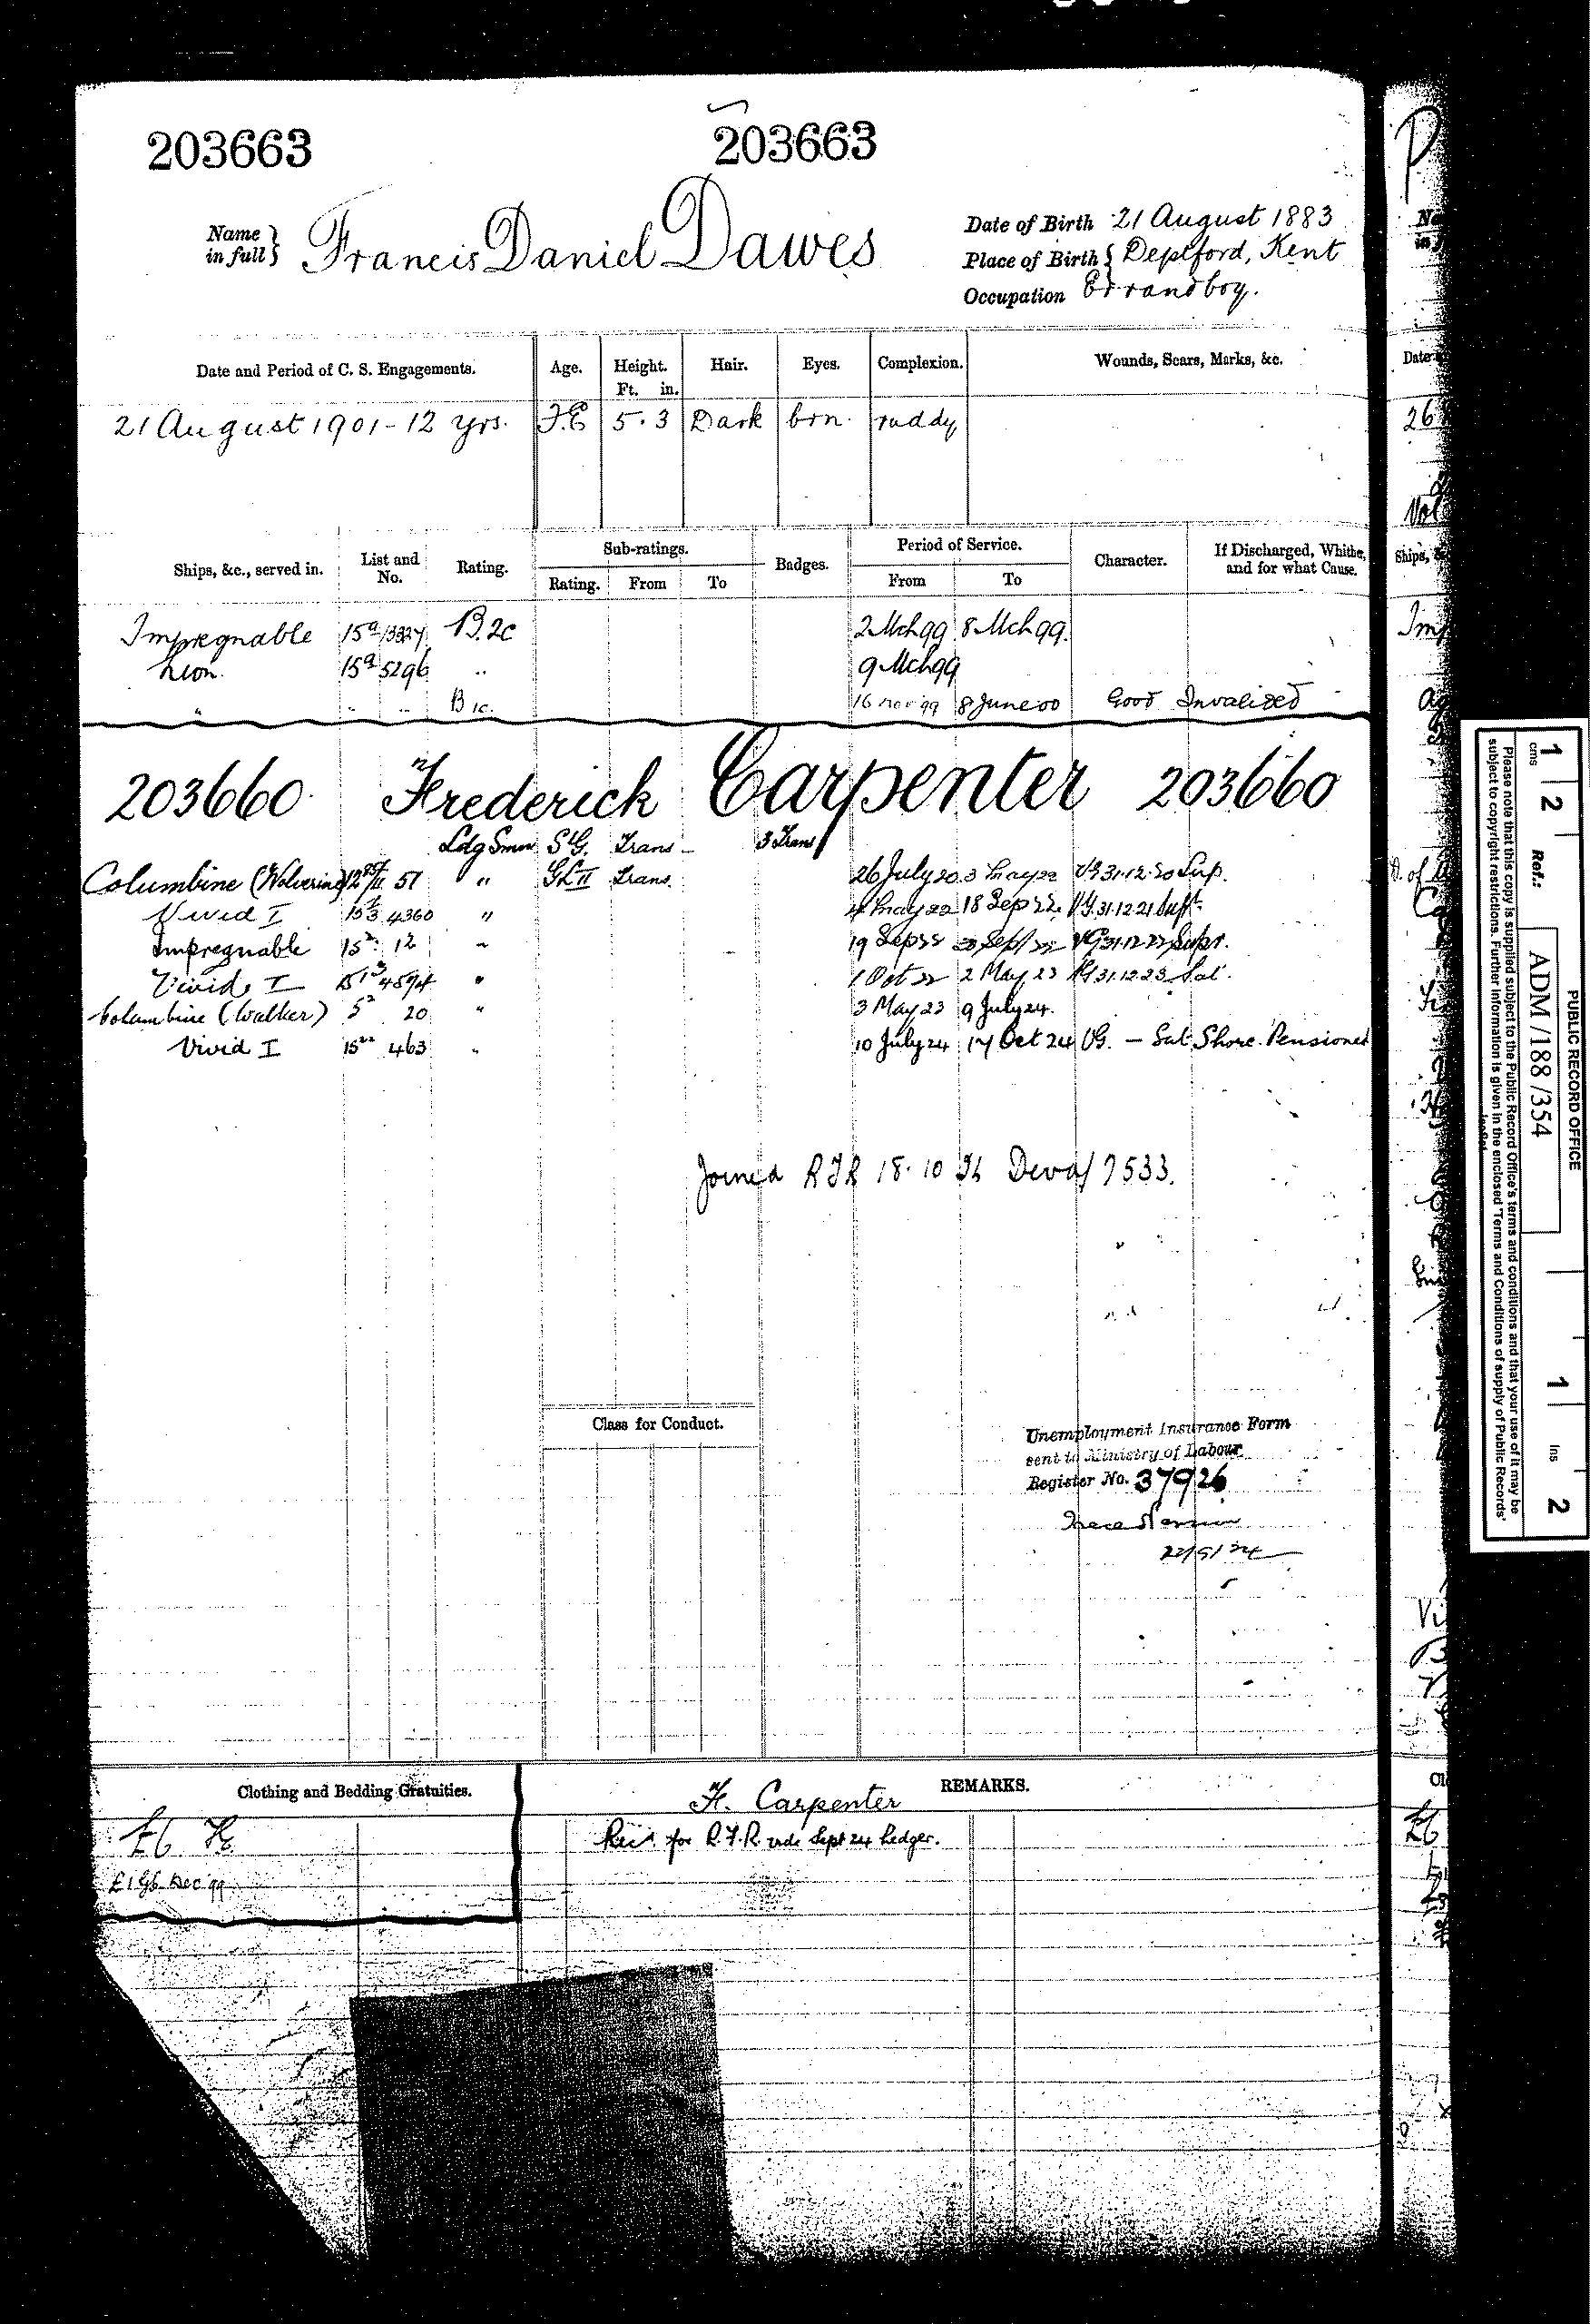 203663 203663
Name in full } Francis Daniel Dawes
Date of Birth 21 August 1883
Place of Birth } Deptford, Kent
Occupation Errand boy.
Date and Period of C. S. Engagements. Age. Height. Ft. in. Hair. Eyes. Complexion. Wounds, Scars, Marks, &c.
21 August 1901 - 12 yrs. F.E 5.3 Dark brn. ruddy
Ships, &c., served in. List and No. Rating. Sub-ratings. Rating. From To Badges. Period of Service. From To Character. If Discharged, Whither, and for what Cause.
Impregnable 15a B.2c 2 Mch 99 8 Mch 99.
Lion 15a 5296 " 9 Mch 99
" " " B 1c. 16 Nov 99 8 June 00 Good Invalided
203660 Frederick Carpenter 203660
Ldg Smn S.G. Trans - 3 Trans
Columbine (Wolverine) 51 " GL II Trans. 26 July 20 3 May 22 VG 31.12.20 Sup.
Vivid I 4360 " 4 May 22 18 Sep 22. VG 31.12.21
Impregnable 15 12 " 19 Sep 22 VG 31.12.22
Vivid I 4594 " 1 Oct 22 2 May 23 VG 31.12.23 Sat.
Columbine (Walker) 5 20 " 3 May 23 9 July 24.
Vivid I 463 " 10 July 24 17 Oct 24 VG. - Sat Shore. Pensioned
Joined RFR 18.10.24 Dev 7533.
Class for Conduct.
Unemployment Insurance Form
sent to Ministry of Labour
Register No. 37926
Clothing and Bedding Gratuities.
REMARKS.
F. Carpenter
£6 FE
for R.F.R. vide Sept 24 Ledger.
Dec 99
PUBLIC RECORD OFFICE
Ref.: ADM /188 /354
1 2 cms 1 ins 2
Please note that this copy is supplied subject to the Public Record Office's terms and conditions and that your use of it may be
subject to copyright restrictions. Further information is given in the enclosed 'Terms and Conditions of supply of Public Records'